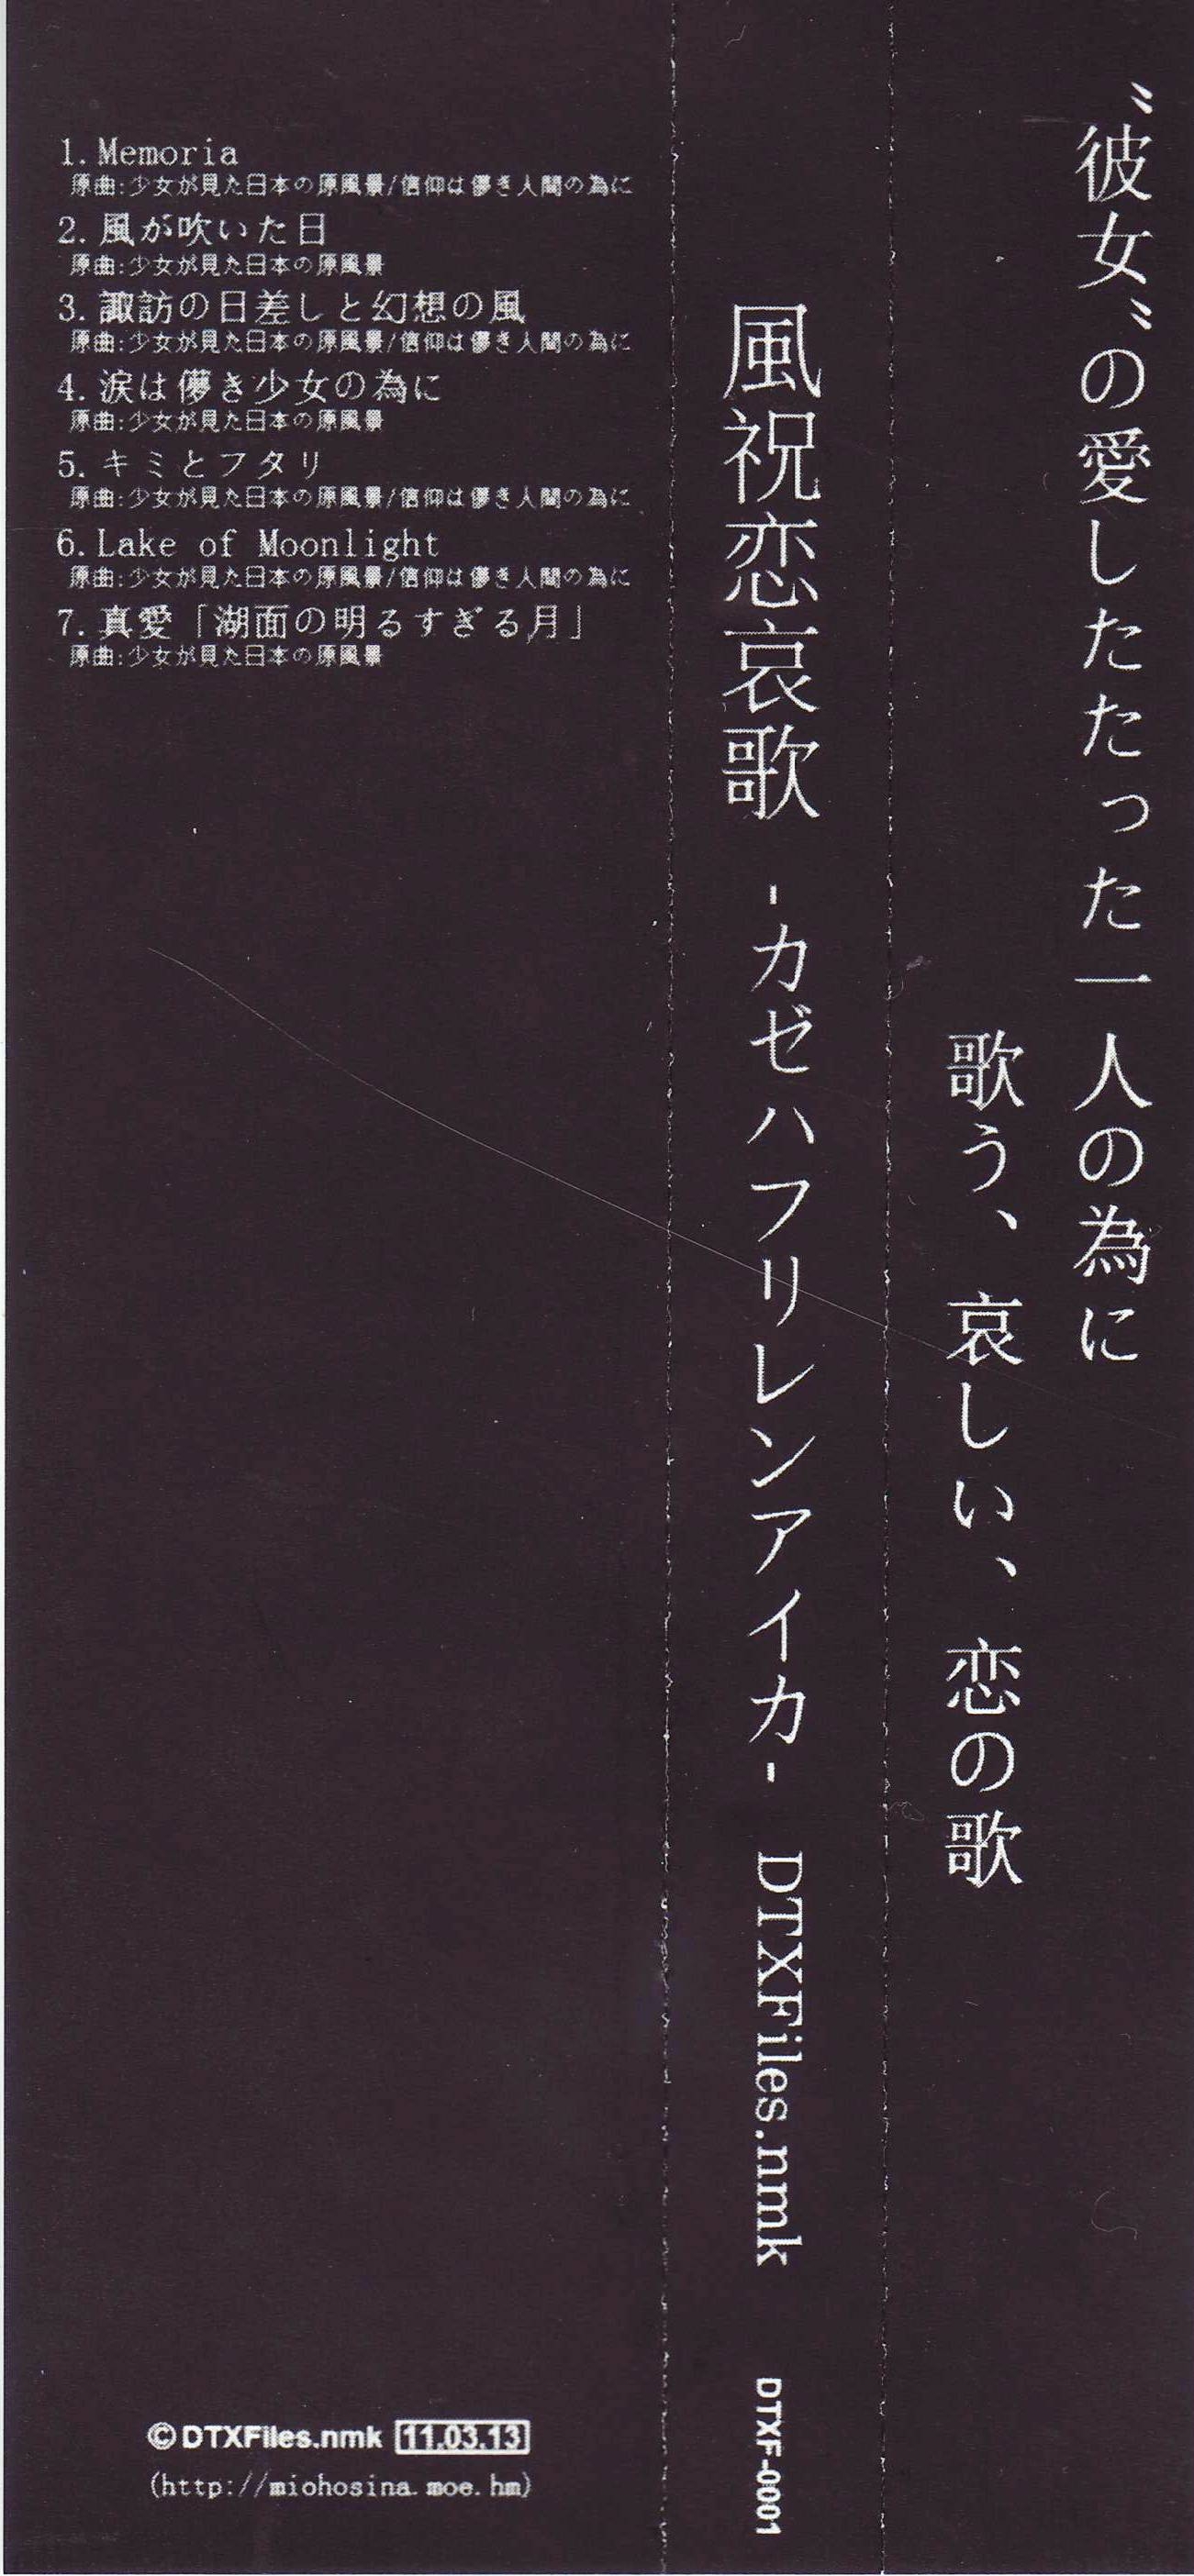 〝彼女〟の愛したたった一人の為に
歌う、哀しい、恋の歌
風祝恋哀歌 -カゼハフリレンアイカ- DTXFiles.nmk DTXF-0001
1.Memoria
原曲:少女が見た日本の原風景/信仰は儚き人間の為に
2.風が吹いた日
原曲:少女が見た日本の原風景
3.諏訪の日差しと幻想の風
原曲:少女が見た日本の原風景/信仰は儚き人間の為に
4.涙は儚き少女の為に
原曲:少女が見た日本の原風景
5.キミとフタリ
原曲:少女が見た日本の原風景/信仰は儚き人間の為に
6.Lake of Moonlight
原曲:少女が見た日本の原風景/信仰は儚き人間の為に
7.真愛「湖面の明るすぎる月」
原曲:少女が見た日本の原風景
©DTXFiles.nmk 11.03.13
(http://miohosina.moe.hm)